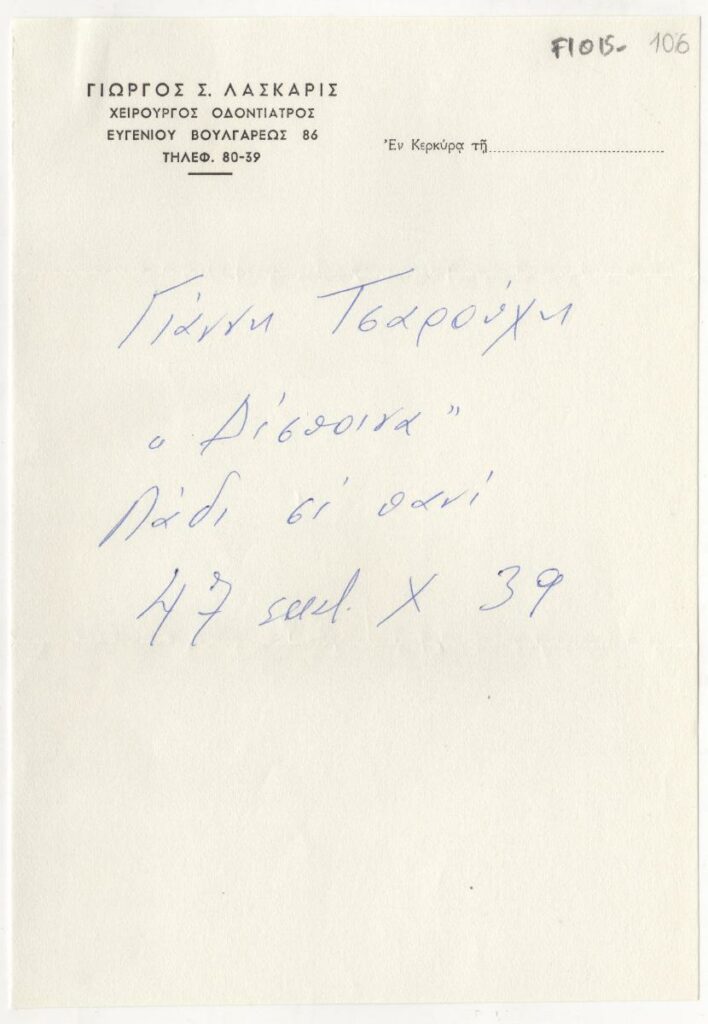 F1015- 106
ΓΙΩΡΓΟΣ Σ. ΛΑΣΚΑΡΙΣ
ΧΕΙΡΟΥΡΓΟΣ ΟΔΟΝΤΙΑΤΡΟΣ
ΕΥΓΕΝΙΟΥ ΒΟΥΛΓΑΡΕΩΣ 86
ΤΗΛΕΦ. 80-39
Ἐν Κερκύρᾳ τῇ
Γιάννη Τσαρούχη
"Δέσποινα"
Λάδι σέ πανί
47 εκ. X 39